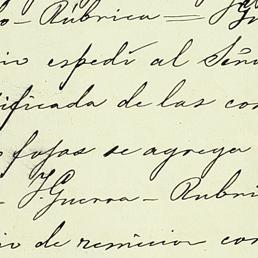 o - Rubrica =
io espedí al Seño
ificada de las co
fojas se agrega
- J. Guerra - Rubri
io de remision con